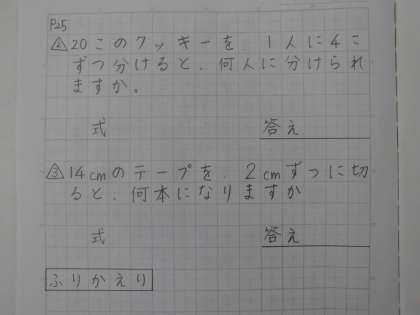 P25
② 20このクッキーを、1人に4こ
ずつ分けると、何人に分けられ
ますか。
式 答え
③ 14cmのテープを、2cmずつに切
ると、何本になりますか
式 答え
ふりかえり